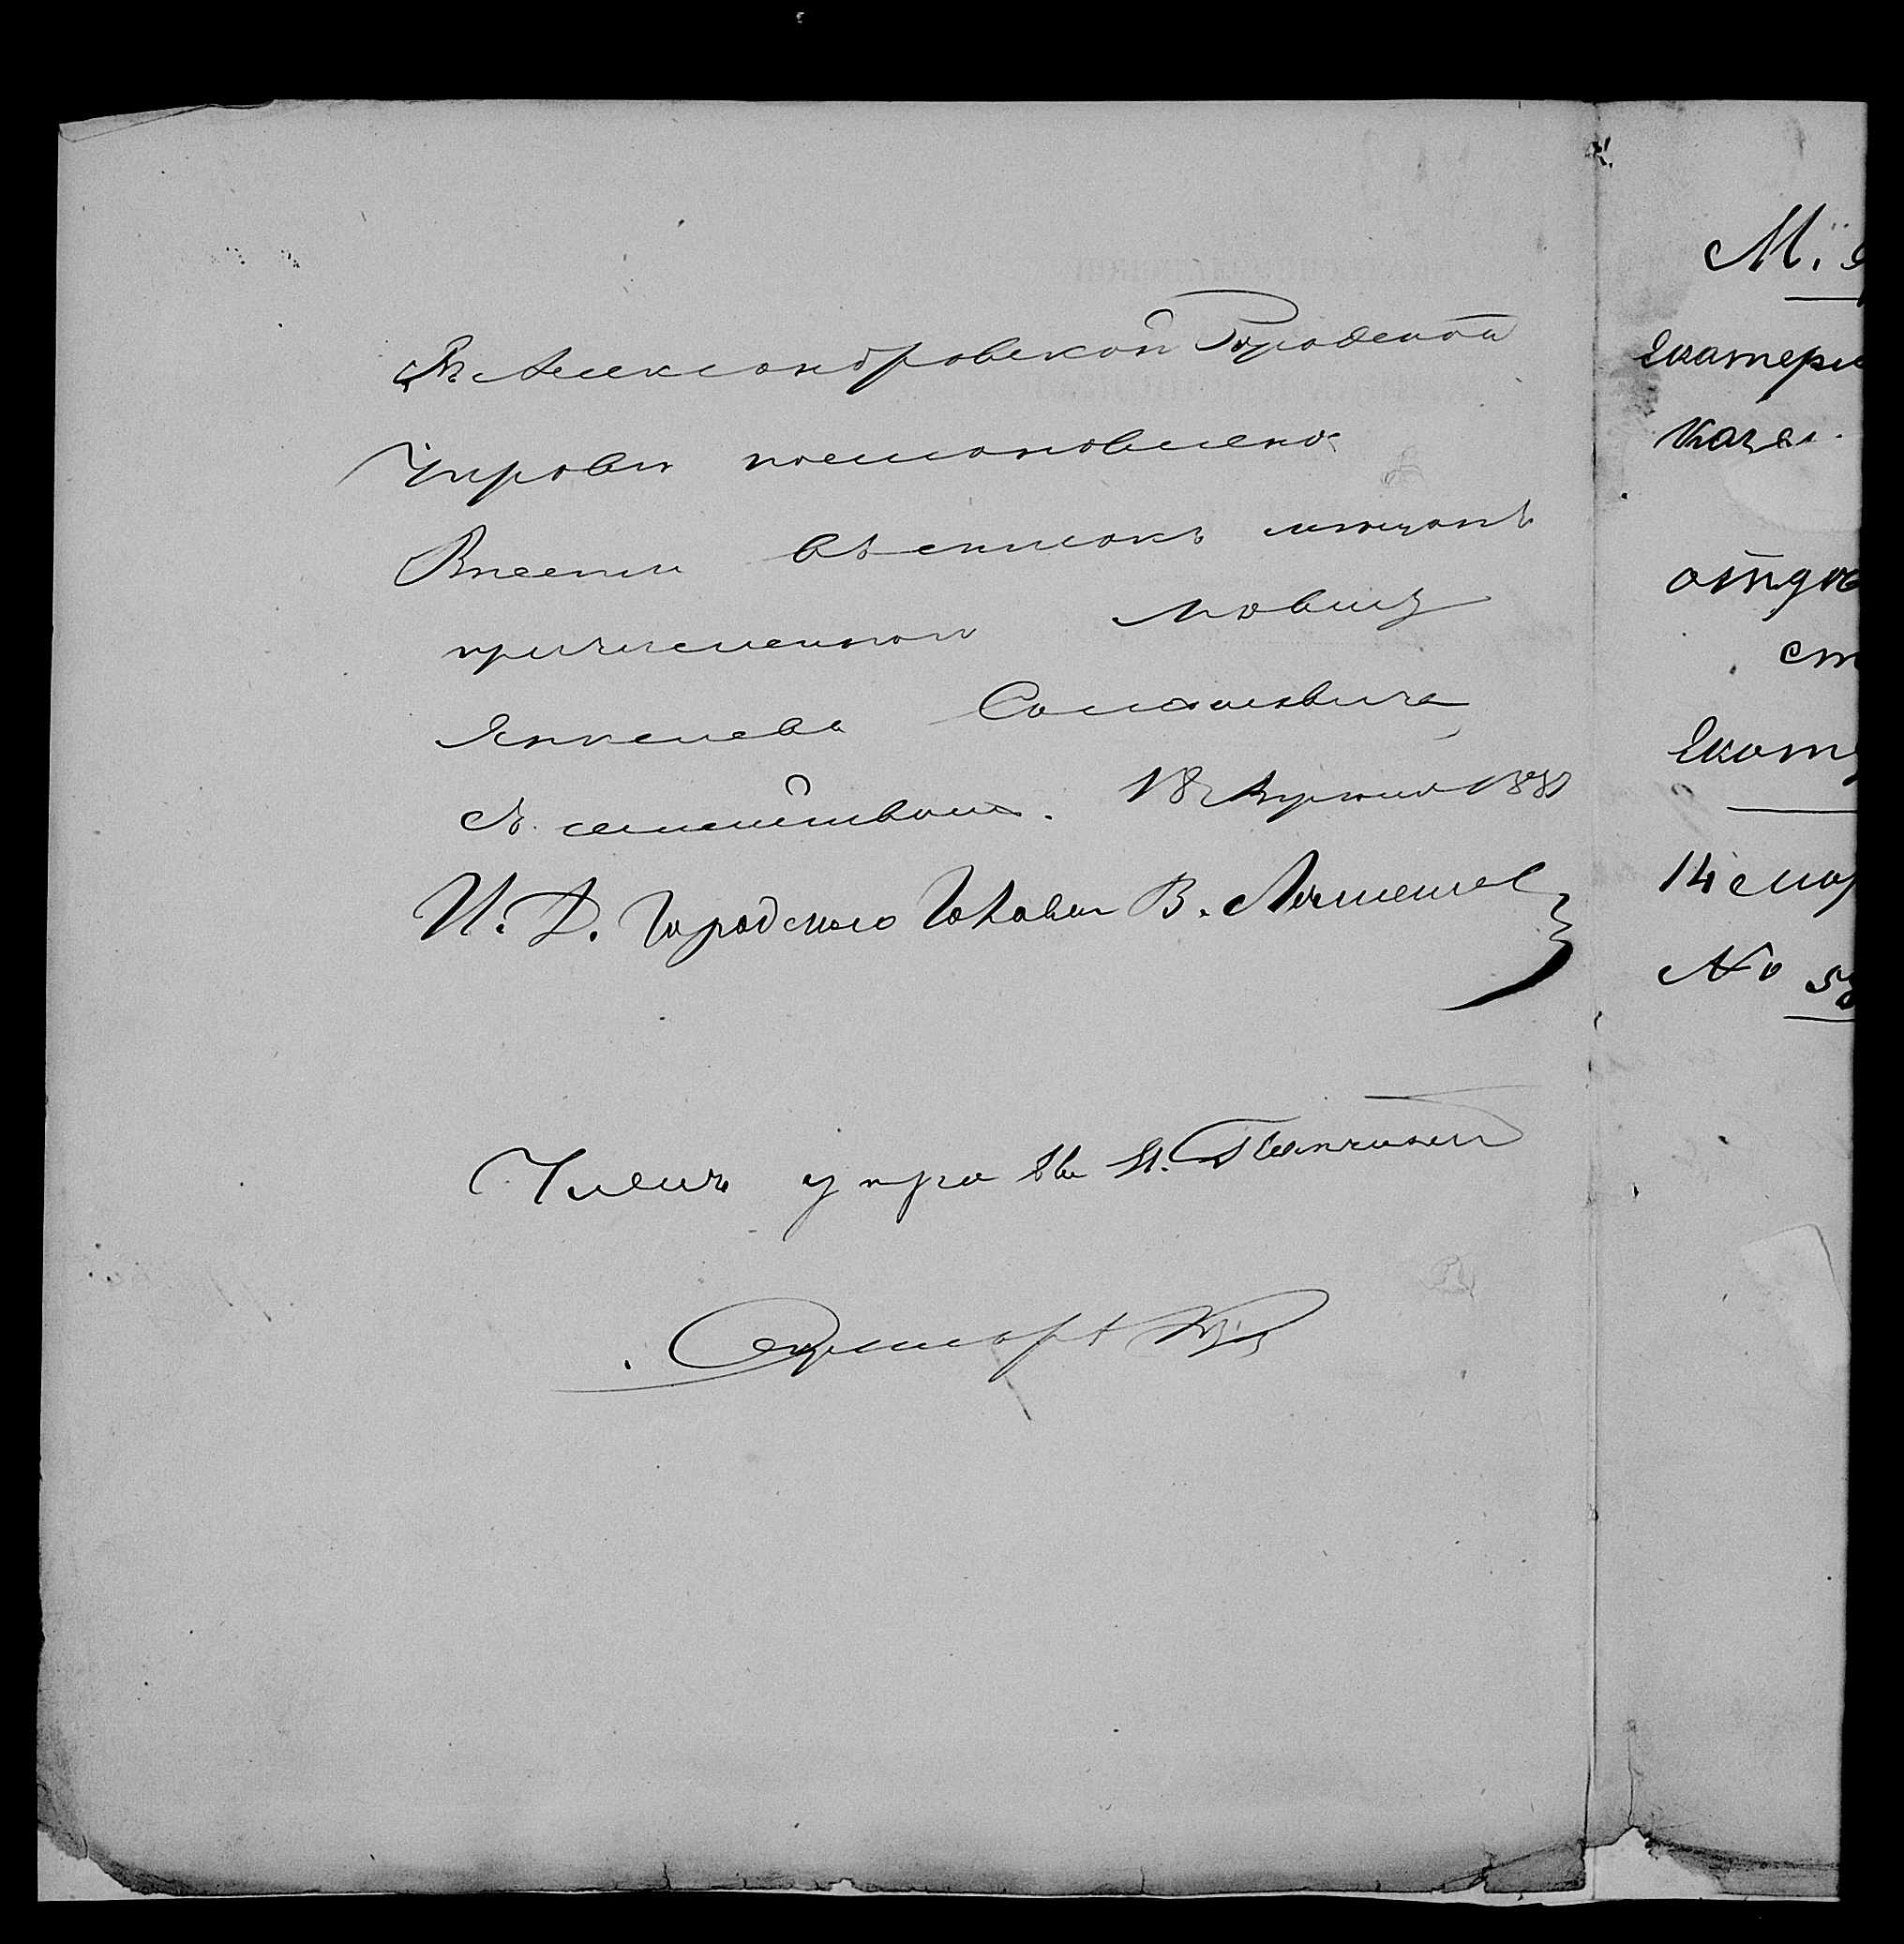 Въ Александровской Городской
Управѣ постановлено:
Внести въ списокъ мѣщанъ
причисленнаго
Янкелева Самойловича
съ семействомъ. 18 Апрѣля 188
И. Д. Городского Головы В.
Членъ управы И.
Секретарь
М.
Екатери
Казен.
отдѣ
ст
Екат
14 мар
№ 5